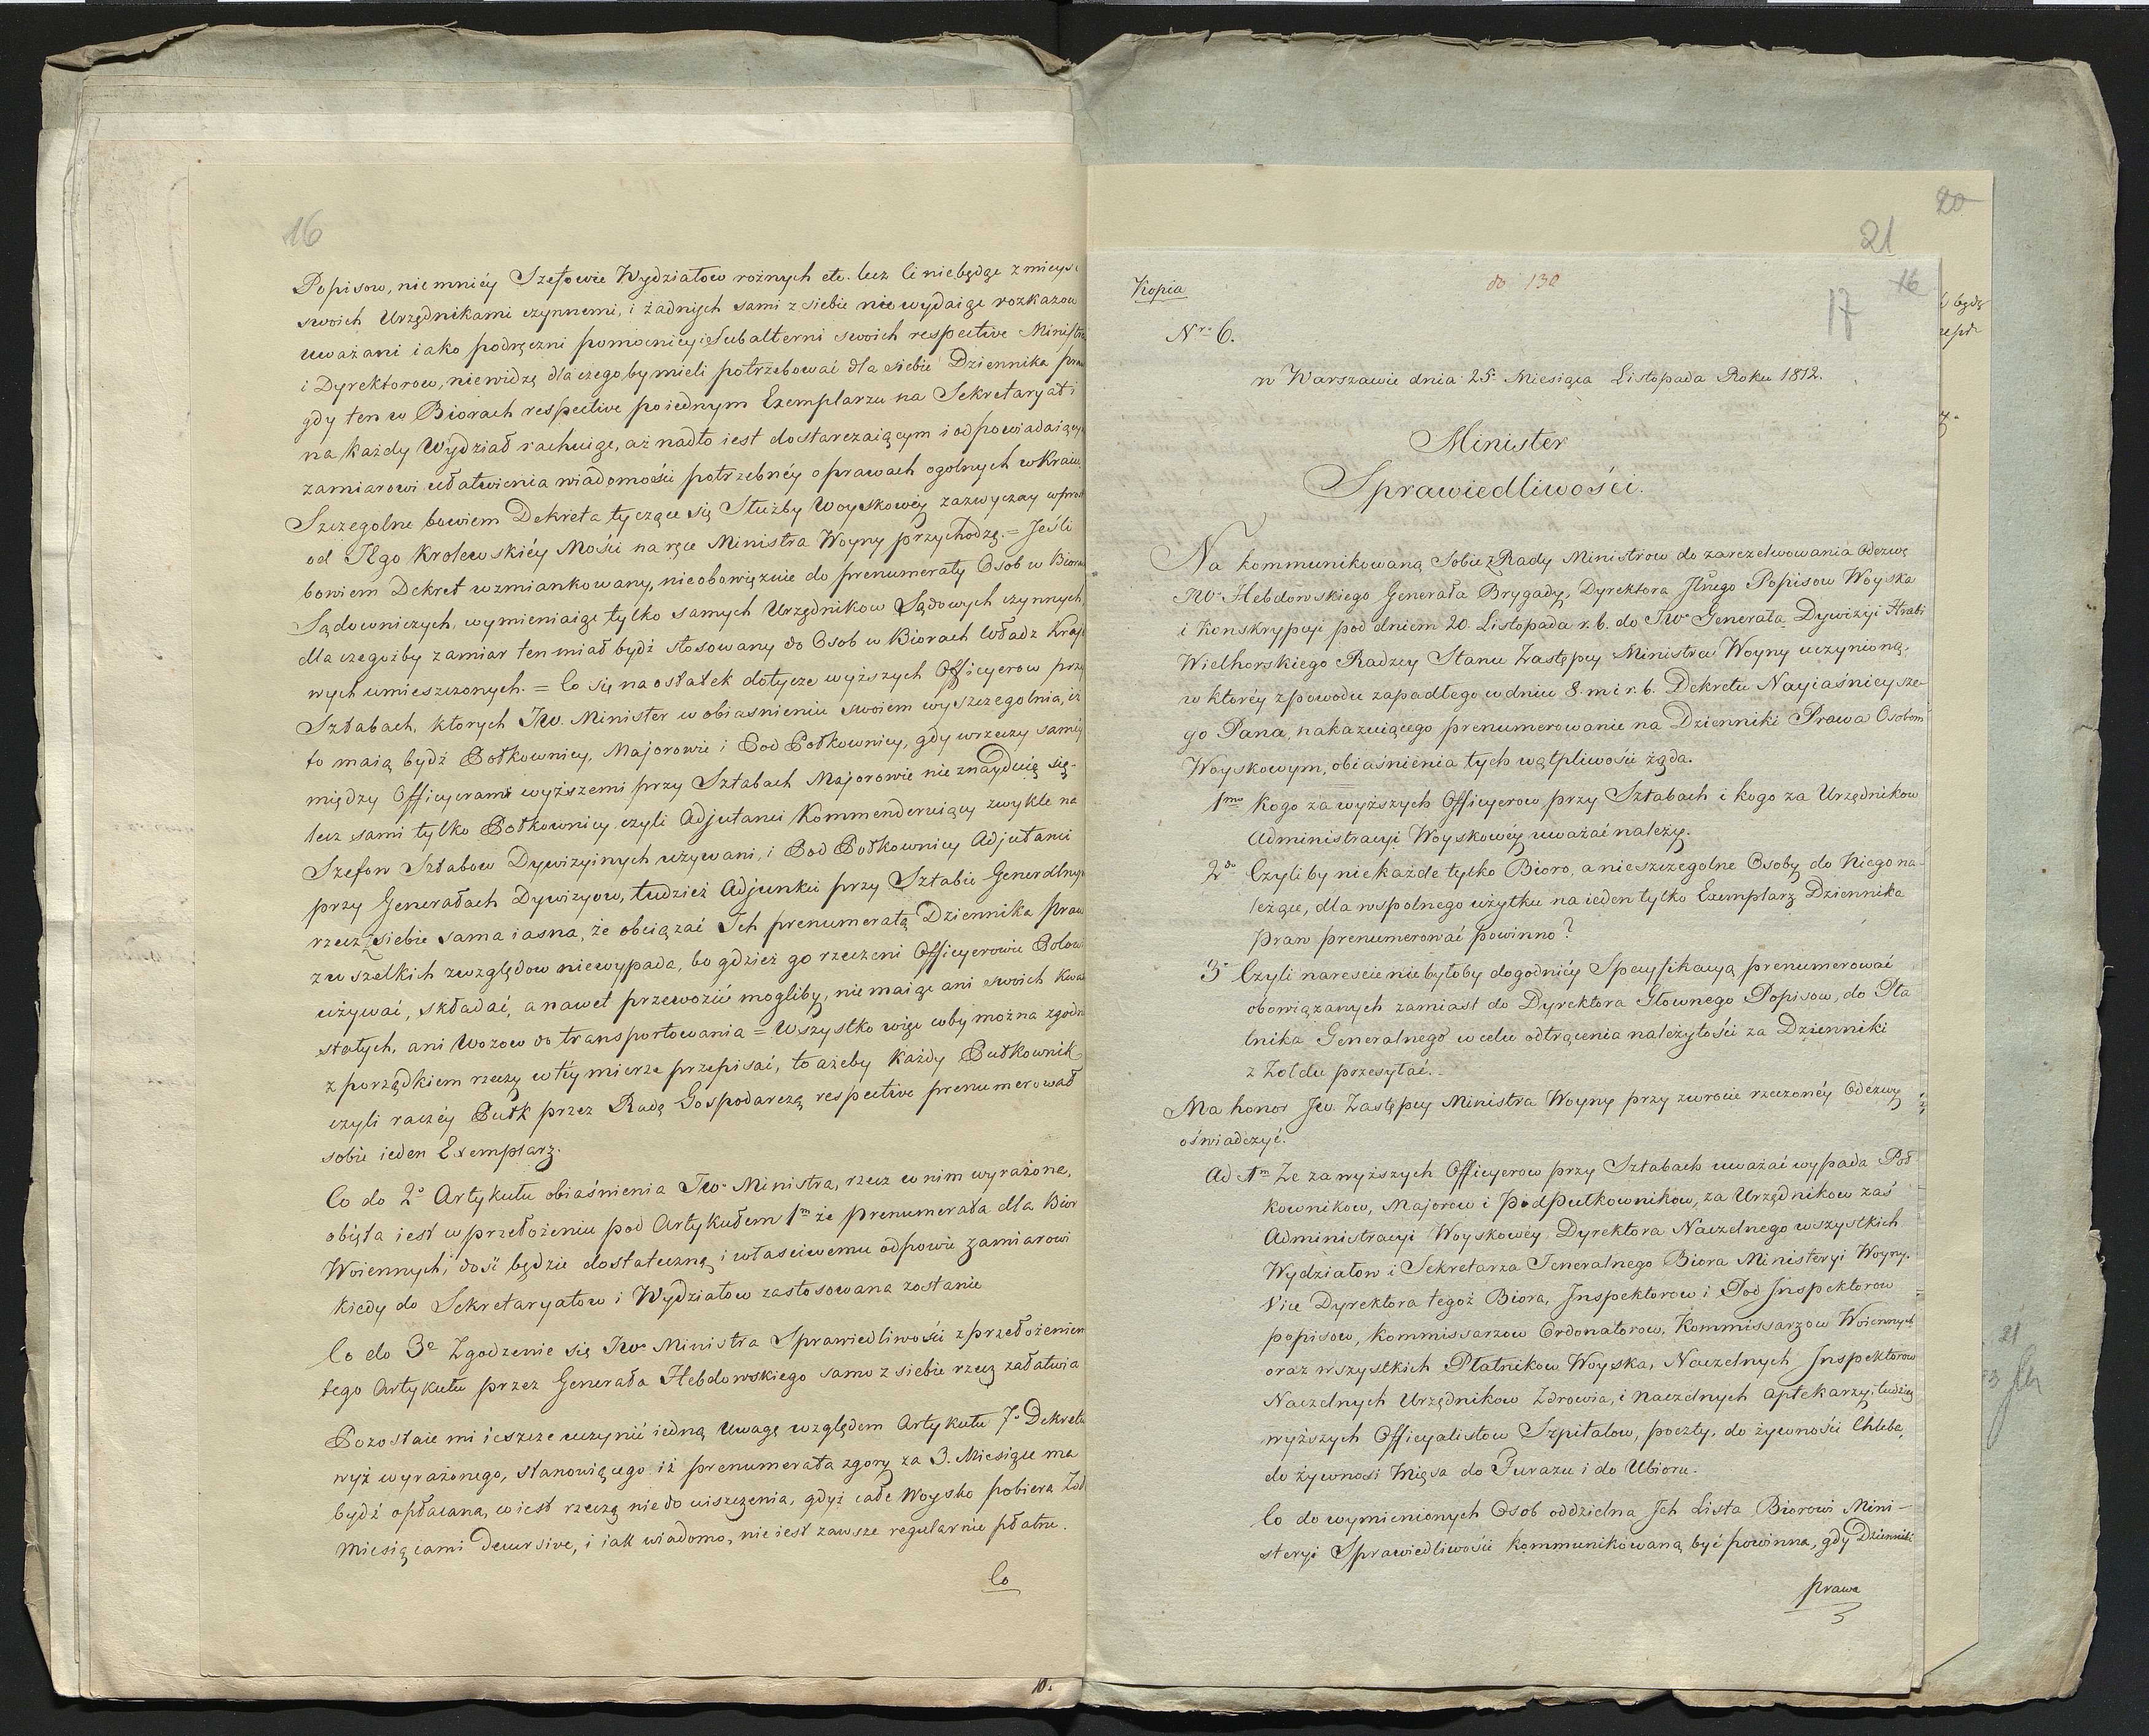 16
Popisow, niemniéy Szefowie Wydziałow rożnych etc. lecz ci niebędąc zmieys
swoich Urzędnikami czynnemi, i żadnych sami z siebie nie wydaiąc rozkazow
uważani iako podręczni pomocnicy i Subalterni swoich respective Ministro
i Dyrektorow, niewidzę dla czego by mieli potrzebować dla siebie Dziennika praw
gdy ten w Biorach respective po iednym Exemplarzu na Sekretaryat i
na każdy Wydział rachuiąc, aż nadto iest dostarczaiącym i odpowiadaiący
zamiarowi ułatwienia wiadomości potrzebnéy o prawach ogolnych w Kraiu.
Szczegolne bowiem Dekreta tyczące się Służby Woyskowéy zazwyczay wprost
od JKgo Krolewskiéy Mości na ręce Ministra Woyny przychodzą. = Jeśli
bowiem Dekret wzmiankowany, nieobowięzuie do prenumeraty Osob w Biorach
Sądowniczych, wymieniaiąc tylko samych Urzędnikow Sądowych czynnych,
dla czegożby zamiar ten miał bydź stosowany do Osob w Biorach Władz Krajo
wych umieszczonych. = Co się na ostatek dotycze wyższych Officyerow przy
Sztabach, ktorych JW. Minister w obiaśnieniu swoiem wyszczegolnia, iż
to maią bydź Połkownicy, Majorowie i Pod Połkownicy, gdy w rzeczy saméy
między Officyerami wyższemi przy Sztabach Majorowie nie znayduią się
lecz sami tylko Połkownicy czyli Adjutanci Kommenderuiący zwykle na
Szefow Sztabow Dywizyinych używani, i Pod Połkownicy Adjutanci
przy Generałach Dywizyow, tudzież Adjunkci przy Sztabie Generalnym
rzecz z siebie sama iasna, że obciązać Ich prenumeratą Dziennika praw
z wszelkich względow niewypada, bo gdzież go rzeczeni Officyerowie Polow
używać, składać, a nawet przewozić mogliby, nie maiąc ani swoich Kwa
stałych, ani Wozow do transportowania = Wszystko więc coby można zgodn
z porządkiem rzeczy w téy mierze przepisać, to ażeby każdy Pułkownik
czyli raczéy Pułk przez Radę Gospodarczą respective prenumerował
sobie ieden Exemplarz.
Co do 2o Artykułu obiaśnienia JW. Ministra, rzecz w nim wyrażone,
obięta iest w przełożeniu pod Artykułem 1m że prenumerata dla Bior
Woiennych, dość będzie dostateczną i właściwemu odpowie zamiarowi
kiedy do Sekretaryatow i Wydziałow zastosowana zostanie
Co do 3o Zgodzenie się JW. Ministra Sprawiedliwości z przełożeniem
tego Artykułu przez Generała Hebdowskiego samo z siebie rzecz załatwia
Pozostaie mi ieszcze uczynić iedną Uwagę względem Artykułu 7o Dekretu
wyż wyrażonego, stanowiącego iż prenumerata zgory za 3. Miesiące ma
bydź opłacana, co iest rzeczą nie do uiszczenia, gdyż całe Woysko pobiera Żoł
Miesiącami Decursive, i iak wiadomo, nie iest zawsze regularnie płatne.
Co
10.
20
21
16
17
Kopia
do 130
Nro 6.
w Warszawie dnia 25. Miesiąca Listopada Roku 1812.
Minister
Sprawiedliwości.
Na kommunikowaną Sobie z Rady Ministrow do zarezelwowania Odezwę
JW. Hebdowskiego Generała Brygady, Dyrektora Jlnego Popisow Woyska
i Konskrypcyi pod dniem 20. Listopada r. b. do JW. Generała Dywizyi Hrabi
Wielhorskiego Radzcy Stanu Zastępcy Ministra Woyny uczynioną,
w ktoréy z powodu zapadłego w dniu 8. m. i r. b. Dekretu Nayiaśnieysze-
go Pana, nakazuiącego prenumerowanie na Dzienniki Prawa Osobom
Woyskowym, obiaśnienia tych wątpliwości żąda.
1mo Kogo za wyższych Officyerow przy Sztabach i kogo za Urzędnikow
Administracyi Woyskowéy uważać należy.
2do Czyli by nie każde tylko Bioro, a nie szczegolne Osoby do Niego na-
leżące, dla wspolnego użytku na ieden tylko Exemplarz Dziennika
Praw prenumerować powinno?
3o Czyli narescie nie byłoby dogodniéy Specyfikacyą prenumerować
obowiązanych zamiast do Dyrektora Głownego Popisow, do Pła
tnika Generalnego w celu odtrącenia należytości za Dzienniki
z Żołdu przesyłać.
Ma honor JW. Zastępcy Ministra Woyny przy zwrocie rzeczonéy Odezwy
oświadczyć.
Ad 1m Że za wyższych Officyerow przy Sztabach uważać wypada Poł
kownikow, Majorow i Podpułkownikow, za Urzędnikow zaś
Administracyi Woyskowéy Dyrektora Naczelnego wszystkich
Wydziałow i Sekretarza Jeneralnego Biora Ministeryi Woyny.
Vice Dyrektora tegoż Biora, Inspektorow i Pod Inspektorow
popisow, Kommissarzow Ordonatorow, Kommissarzow Woiennych
oraz wszystkich Płatnikow Woyska, Naczelnych Inspektorow
Naczelnych Urzędnikow Zdrowia, i naczelnych aptekarzy, tudzież
wyższych Officyalistow Szpitalow, poczty, do żywności Chleba,
do żywności Mięsa do Furażu i do Ubioru.
Co do wymienionych Osob oddzielna Ich Lista Biorowi Mini-
steryi Sprawiedliwości kommunikowaną być powinna, gdy Dzienniki
prawa
21